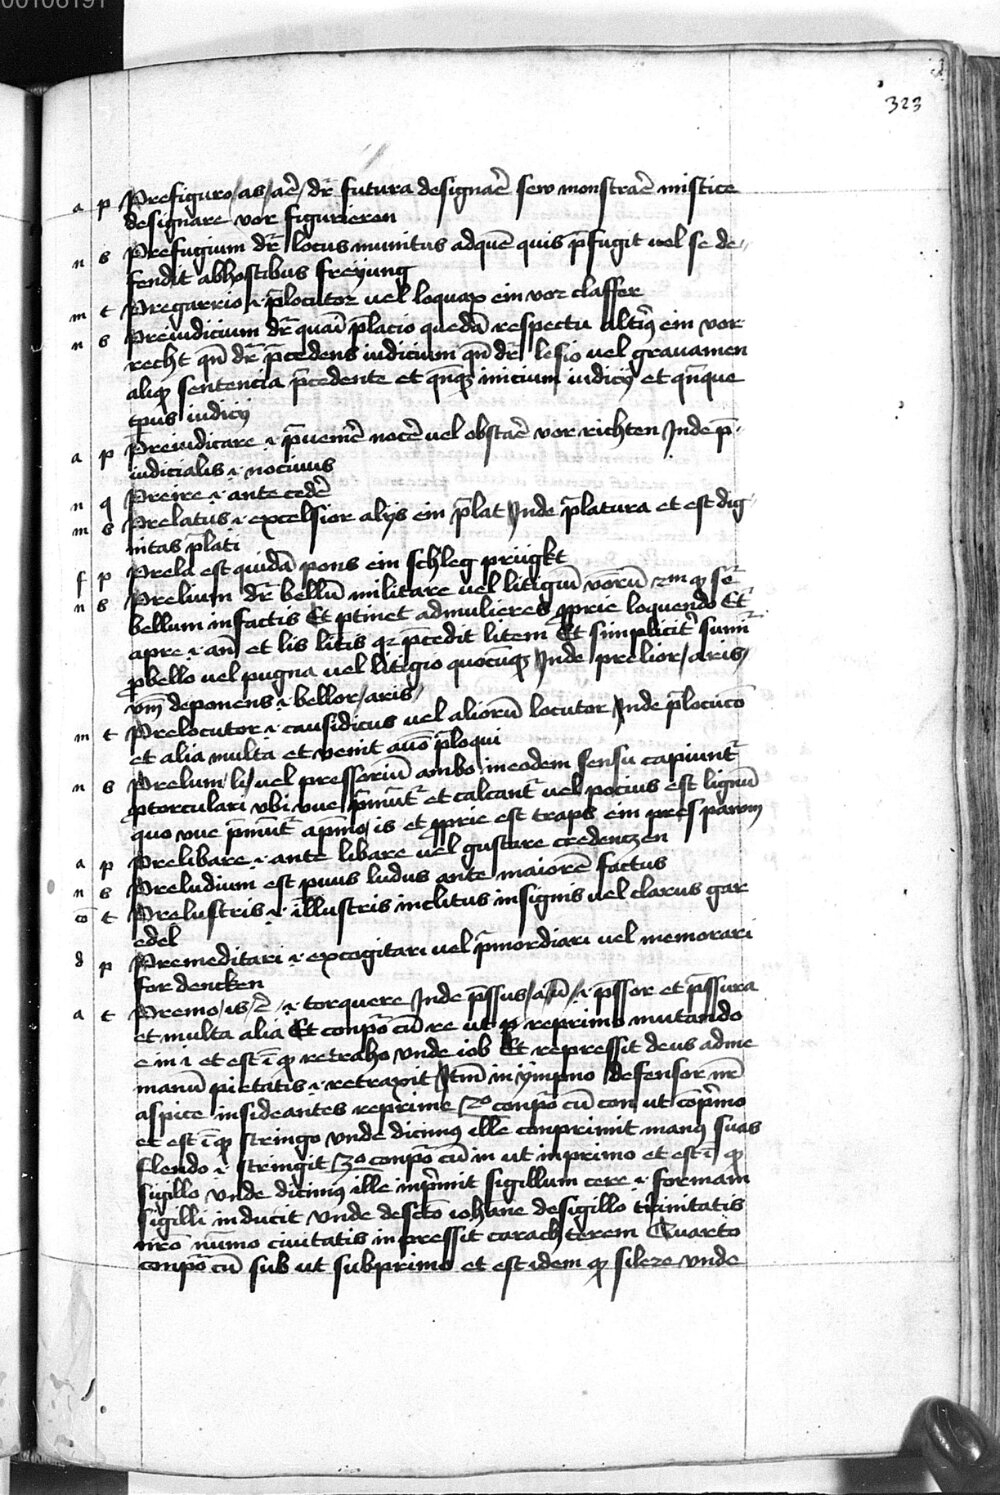 00106191
323
a p Prefiguro/as/ar̄e/ dr̄ futura designar̄e sew monstrar̄e mistice
designare vor figurieren
n s Prefugium dr̄ locus munitus adquē quis p̄fugit uel se de-
fendit abhostibus freyung
m t Pregarrio .i. p̄locutor uel loquax ein vor claffer
n s Preiudicium dr̄ quasi p̄lacio quedā respectu alti9 ein vor
recht qn̄ dr̄ p̄cedens iudicium qn̄ dr̄ lesio uel grauamen
aliq̄ sentencia p̄cedente et qn̄q3 inicium iudicij et qn̄que
tp̄us iudicij
a p Preiudicare .i. p̄uenir̄e nocer̄e uel obstar̄e vor richten Inde p̄-
iudicialis .i. nociuus
n q Preire .i. ante ceder̄e
m s Prelatus .i. excelsior alijs ein p̄lat Inde p̄latura et est dig-
nitas p̄lati
f p Prela est quidā pons ein schleg prügkt
n s Prelium dr̄ bellū militare uel litigiū
bellum infactis Et ptinet admulieres p̄prie loquendo Et
apre .i. an̄ et lis litis q2 p̄cedit litem Et simplicit̄ sumit̄
p̄bello uel pugna uel litigio quocūq3 Inde prelior/aris/
vm̄ deponens .i. bellor/aris/
m t Prelocutor .i. causidicus uel aliorū locutor Inde p̄locucō
et alia multa et venit auō p̄loqui
n s Prelum/li/uel pressoriū ambo ineodem sensu capiunt̄
p̄torculari vbi vue p̄mūt̄ et calcant̄ uel pocius est lignū
quo vue p̄mūt̄ ap̄mo/is et p̄prie est traps ein pres pawm
a p Prelibare .i. ante libare uel gustare credenczen
n s Preludium est p̄uus ludus ante maiorē factus
cō t Prelustris .i. illustris inclitus insignis uel clarus gar
edel
d p Premeditari .i. excogitari uel p̄mordiari uel memorari
for dencken
a t Premo/is/ē/ .i. torquere Inde p̄ssus/a/ū/ .i. p̄ssor et p̄ssura
et multa alia Et conpō cū re ut p̄ reprimo mutando
e in i et est iq̄ retraho vnde iob Et repressit deus adme
manū pietatis .i. retraxit Itm̄ in ympno defensor nr̄
aspice insideantes reprime 2º conpō cū con ut cop̄mo
et est iq̄ stringo vnde dicim9 ille conprimit man9 suas
flendo .i. stringit 3º conpō cū in ut inprimo et est iq̄
sigillo vnde dicim9 ille inp̄mit sigillum cere .i. formam
sigilli inducit vnde descō iohāne desigillo trinitatis
nr̄o num̄o ciuitatis inpressit carachterem Quarto
conpō cū sub ut subprimo et est idem q̄ silere vnde